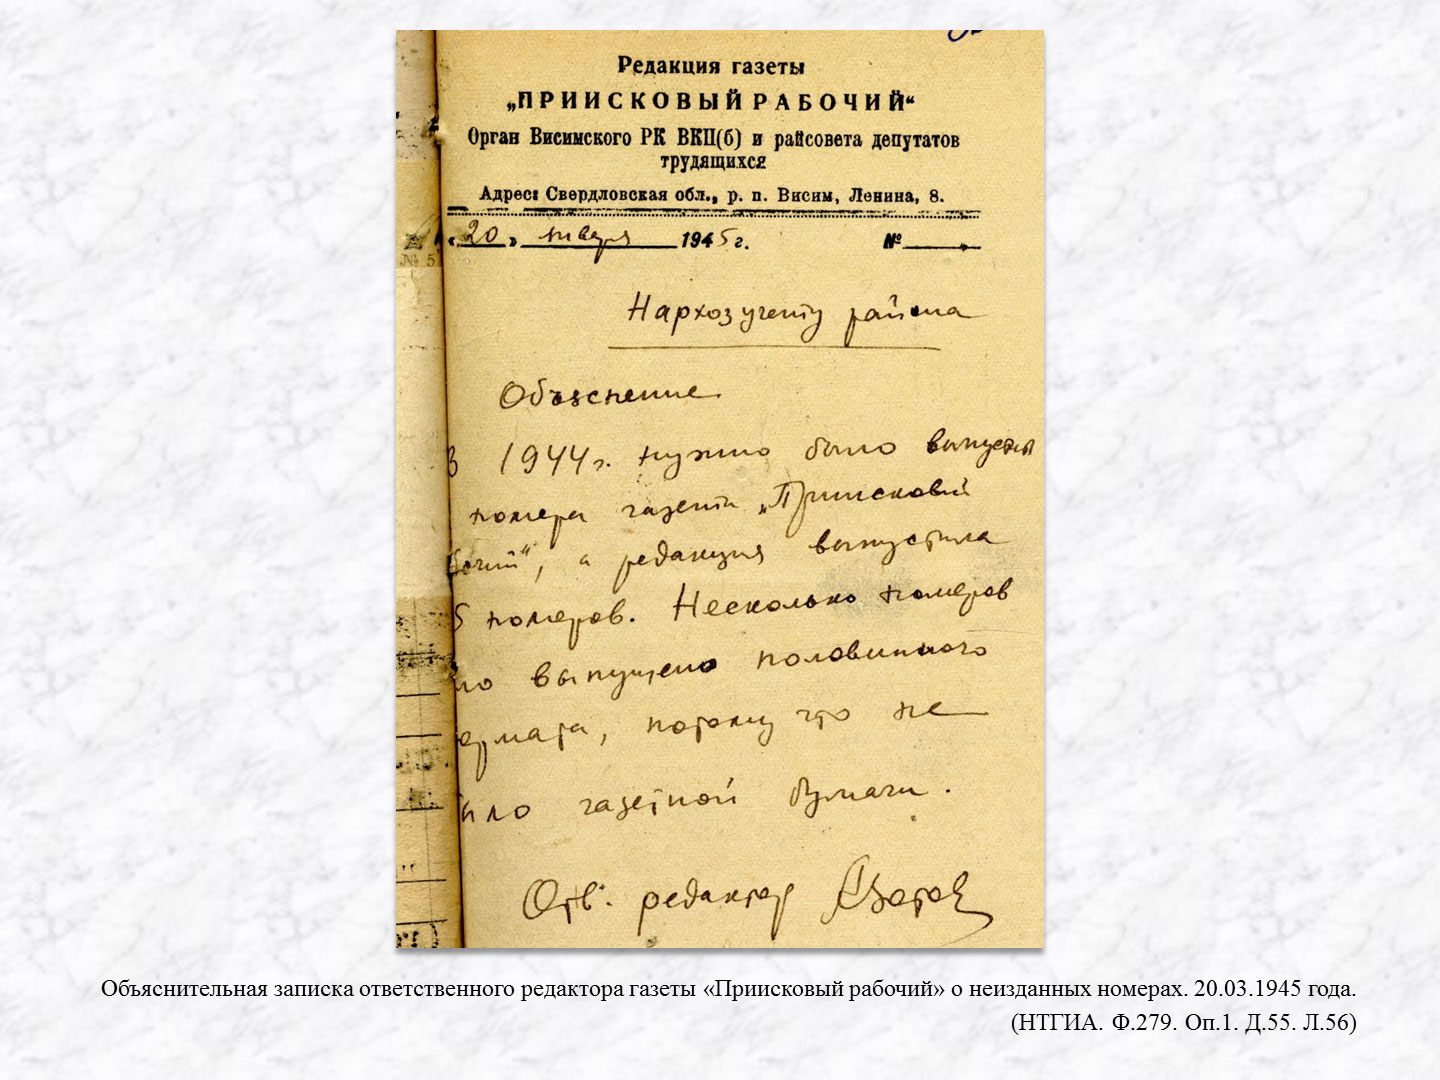 Редакция газеты
„ПРИИСКОВЫЙ РАБОЧИЙ“
Орган Висимского РК ВКП(б) и райсовета депутатов
трудящихся
Адрес: Свердловская обл., р. п. Висим, Ленина, 8.
№ 5
«20» января 1945 г. №
Нархозучету района
Объяснение
В 1944 г. нужно было выпустить
номера газеты „Приисковый
бочий“, а редакция выпустила
5 номеров. Несколько номеров
ло выпущено половинного
ормата, потому что не
ыло газетной бумаги.
Отв. редактор
Объяснительная записка ответственного редактора газеты «Приисковый рабочий» о неизданных номерах. 20.03.1945 года.
(НТГИА. Ф.279. Оп.1. Д.55. Л.56)